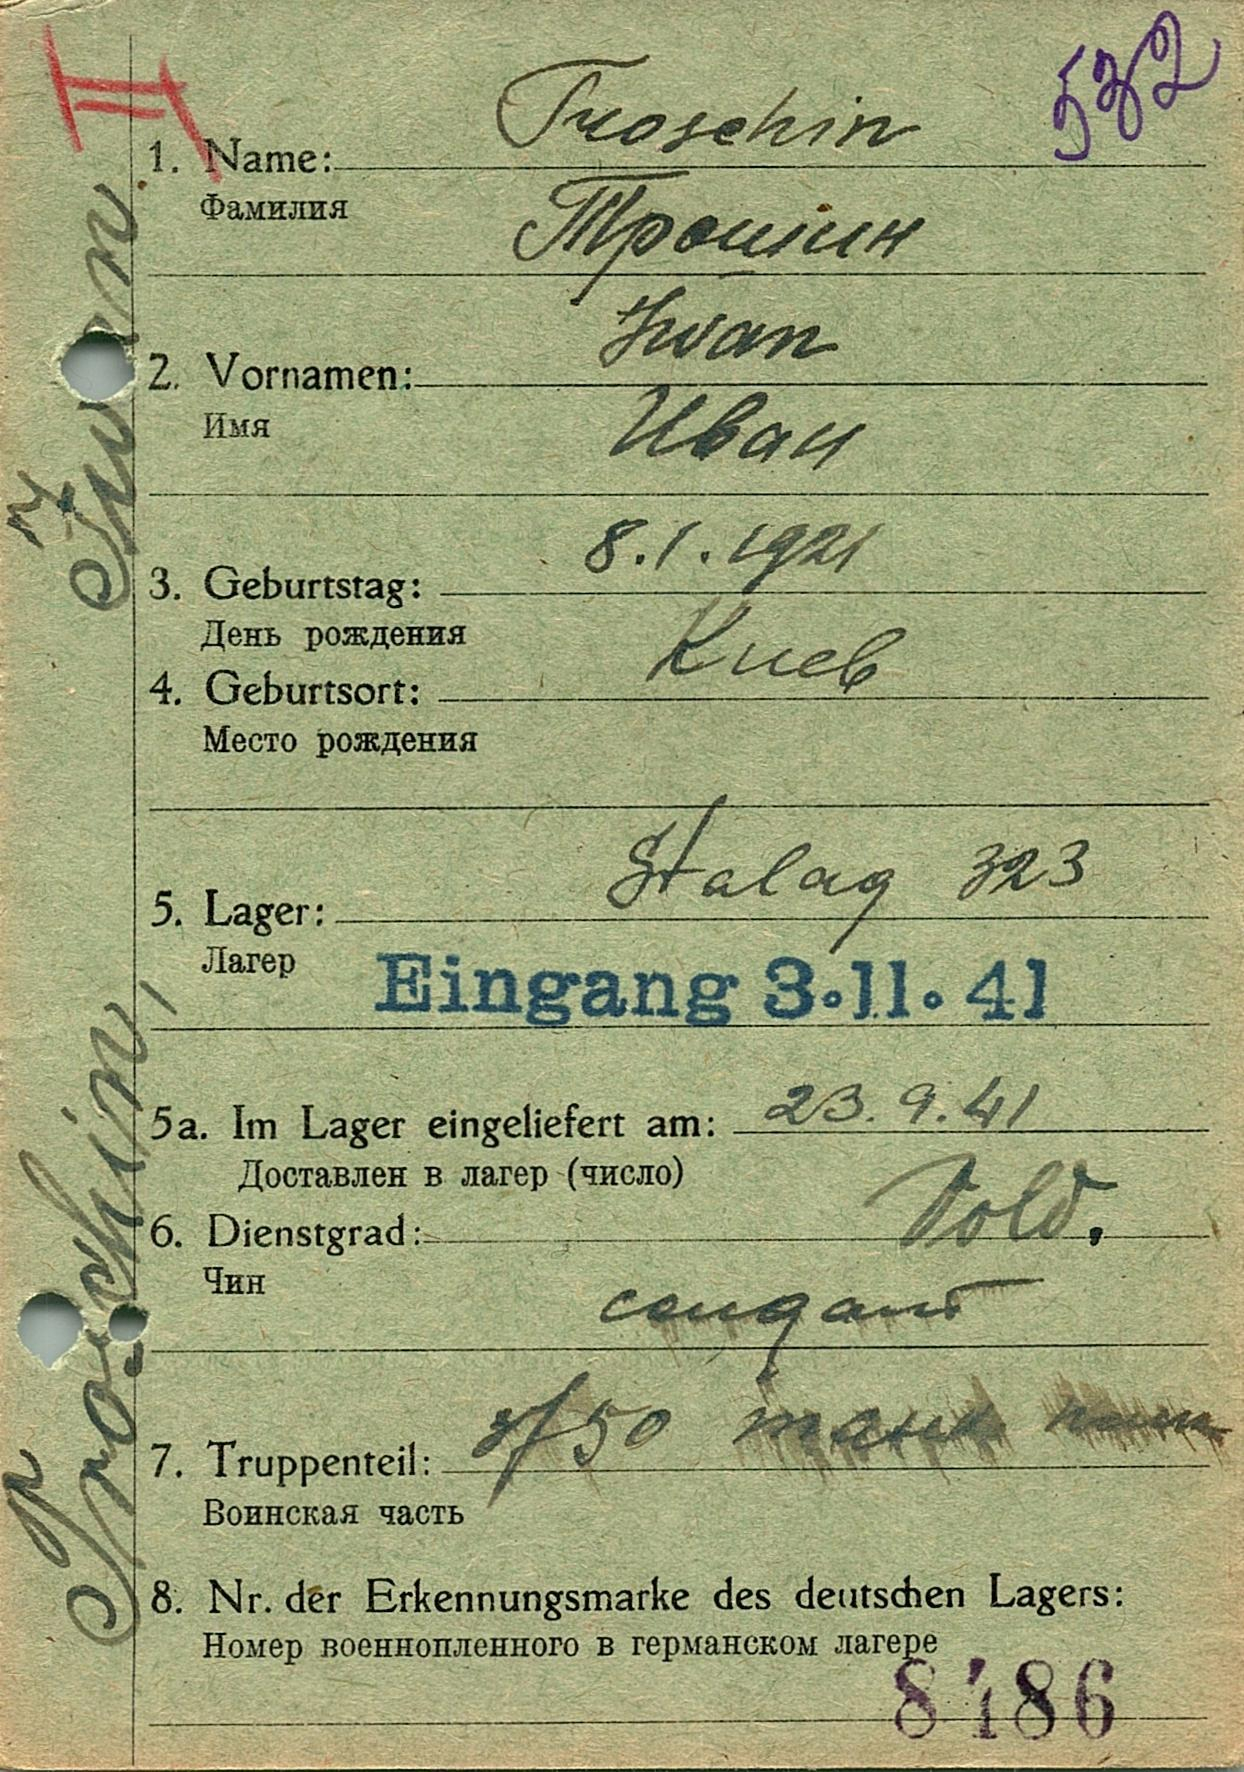 II
532
Troschin
1. Name:
Фамилия
Трошин
Iwan
2. Vornamen:
Имя
Иван
8.1.1921
3. Geburtstag:
День рождения
Киев
4. Geburtsort:
Место рождения
Stalag 323
5. Lager:
Лагер
Eingang 3.11.41
5a. Im Lager eingeliefert am: 23.9.41
Доставлен в лагер (число)
6. Dienstgrad: Sold.
Чин
7. Truppenteil: 50
Воинская часть
8. Nr. der Erkennungsmarke des deutschen Lagers:
Номер военнопленного в германском лагере
8486
Troschin, Iwan